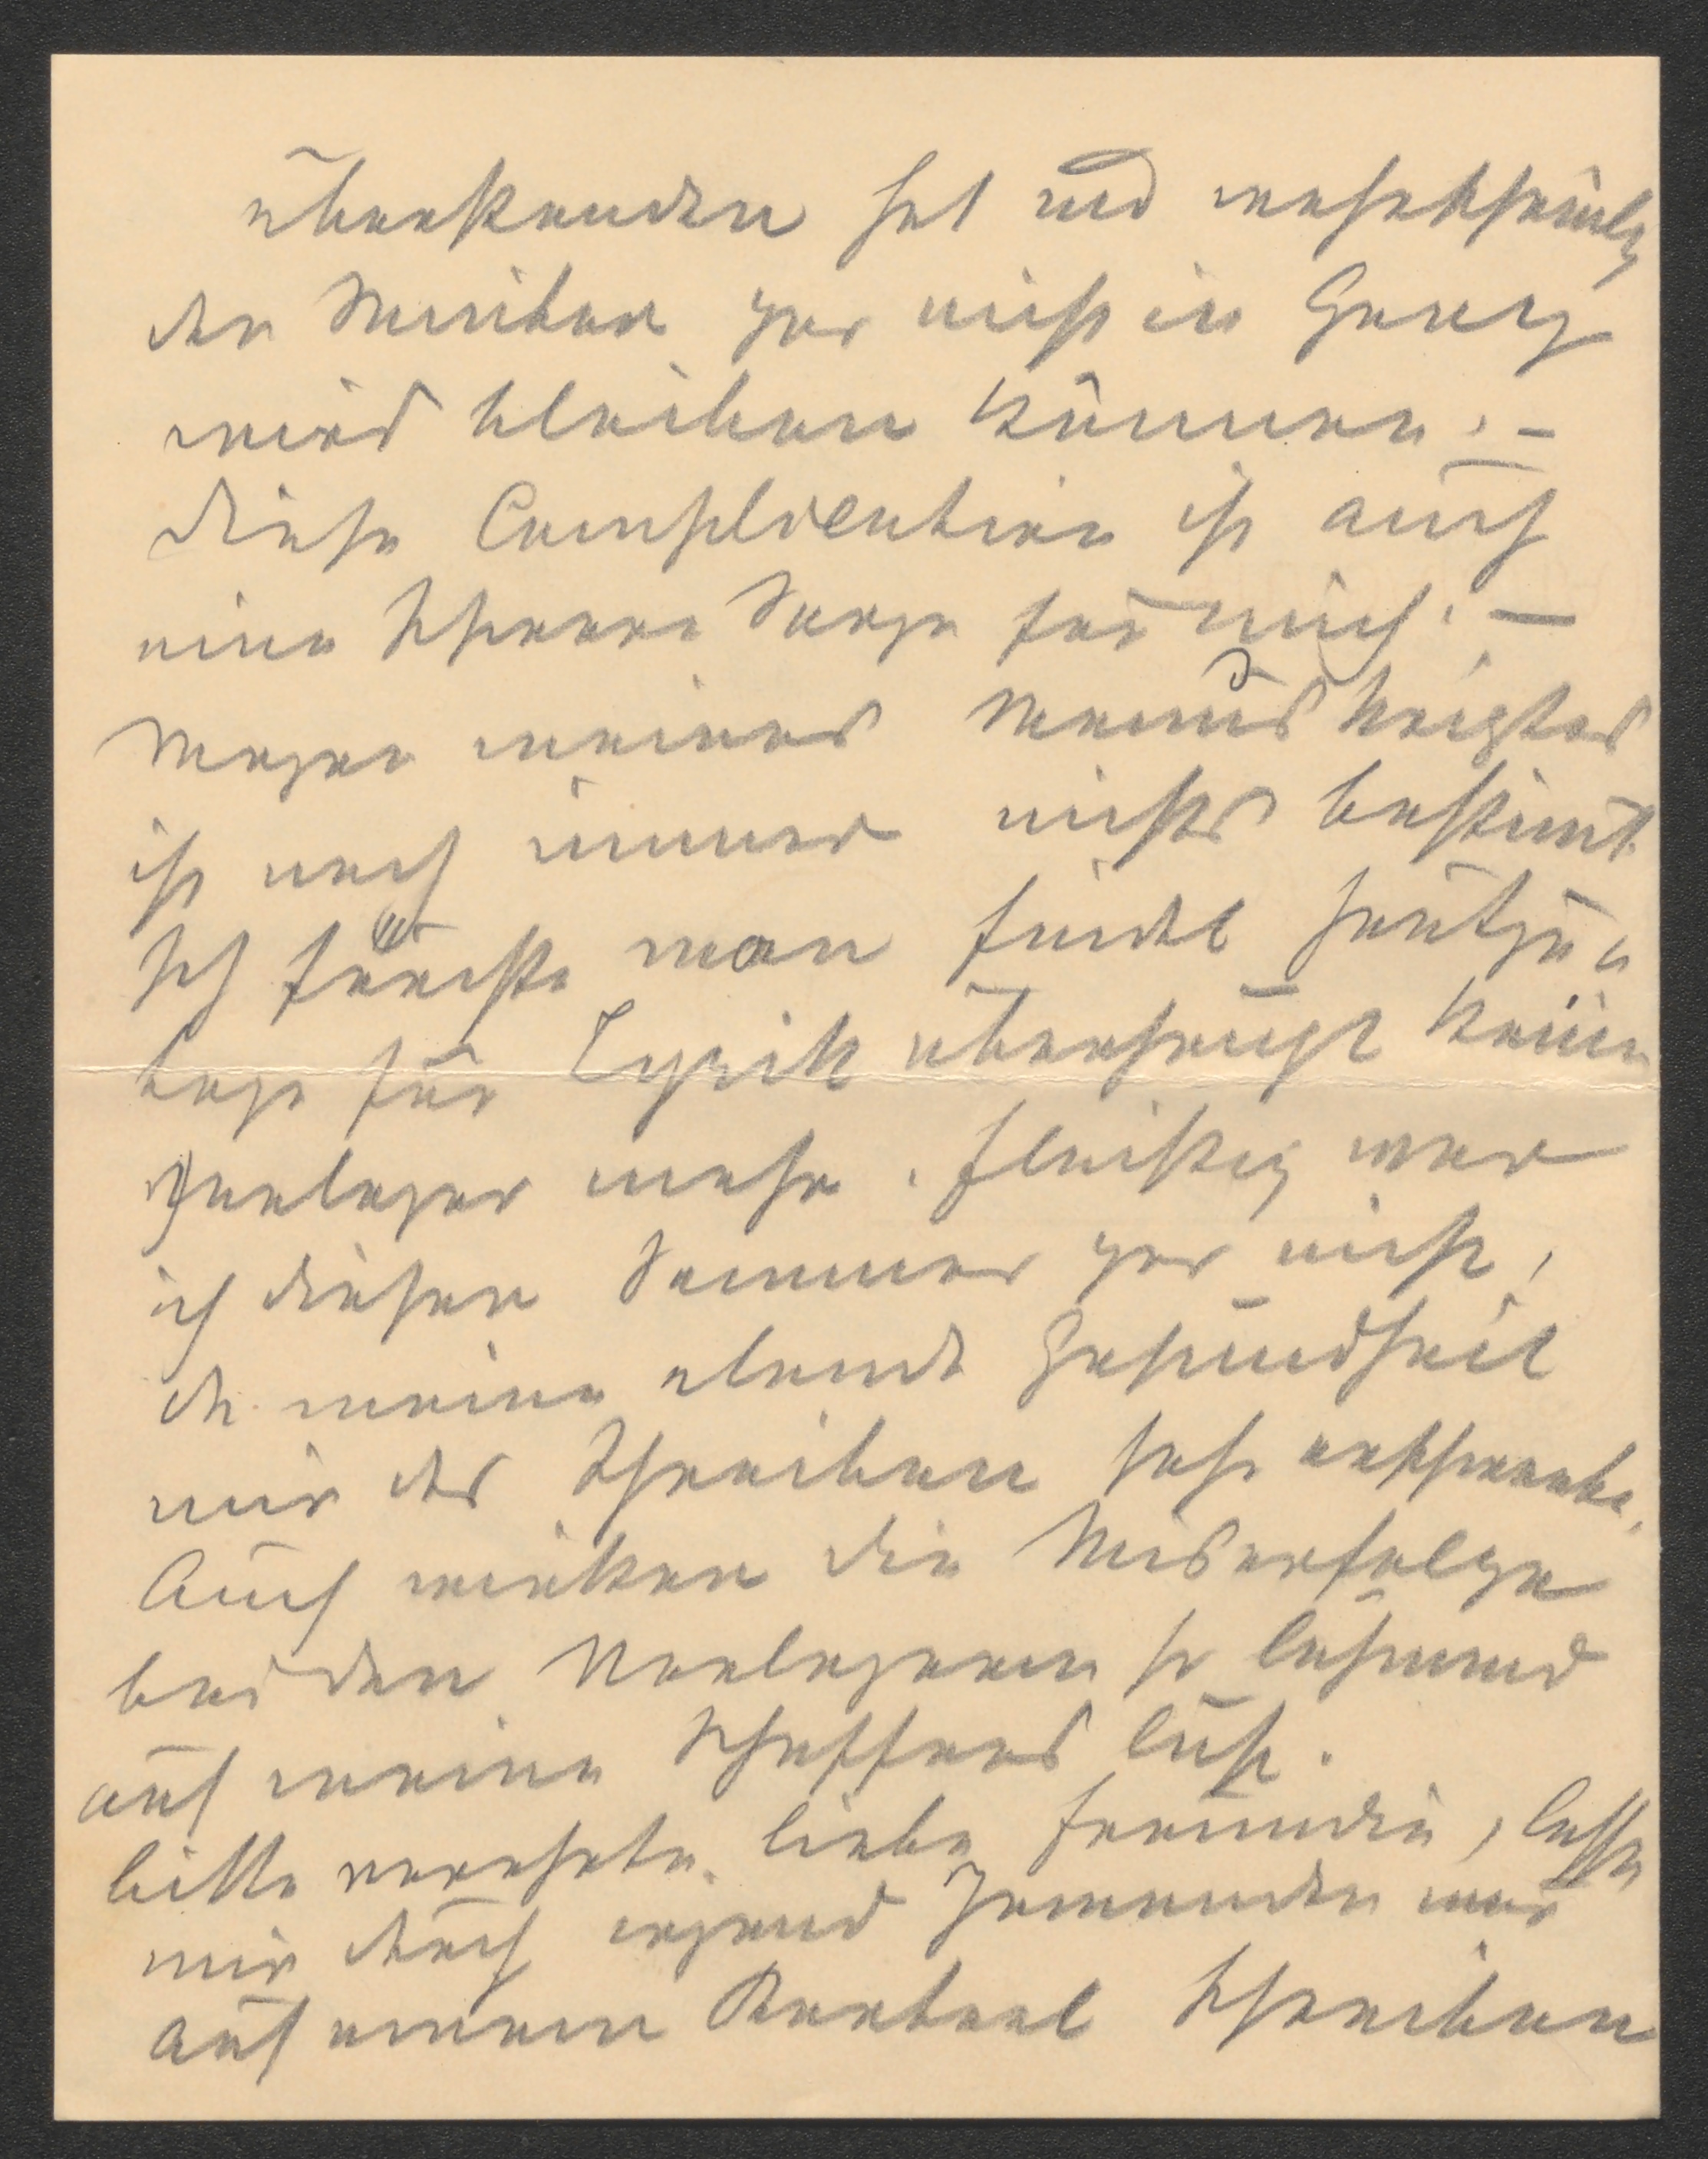 überstanden hat und wahrscheinlich
den Winter gar nicht in Genez
wird bleiben können. –
Diese Complication ist auch
eine schwere Sorge für mich. –
Wegen meines Manuskriptes
ist noch immer nichts bestimt.
Ich fürchte man findet heutzu„
tage für Lyrik überhaupt keine
Verleger mehr. Fleißig war
ich diesen Sommer gar nicht,
da meine elende Gesundheit
mir das Schreiben sehr erschwerte.
Auch wirken die Miserfolge
bei den Verlegern so lähmend
auf meine Schaffens lust.
bitte verehrte, liebe Freundin, lassen
mir durch irgend Jemanden nur
auf einem Karterl schreiben